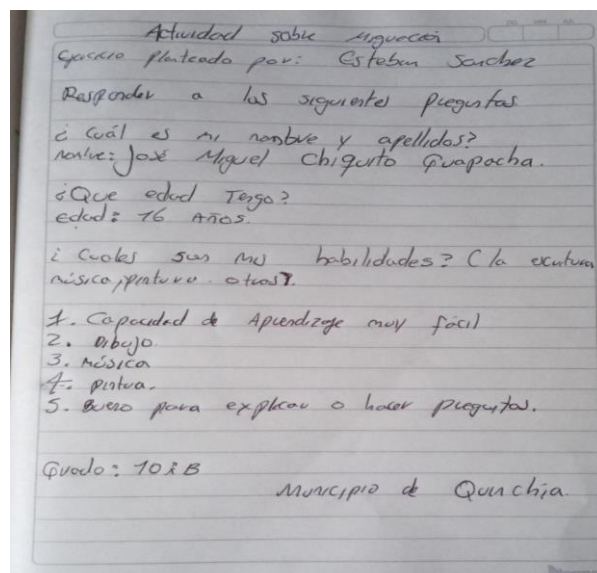 Actividad sobre Migueces
Ejercicio planteado por: Esteban Sanchez
Responder a las siguientes preguntas
¿Cuál es mi nombre y apellidos?
Nombre: José Miguel Chiquito Guapacha.
¿Que edad Tengo?
edad: 16 AÑOS.
¿Cuales son mis habilidades? (la escritura
música, pintura. otros?.
1. Capacidad de Aprendizaje muy fácil
2. Dibujo.
3. Música
4. pintua.
5. Bueno para explicar o hacer preguntas.
Grado: 10 B
Municipio de Quinchia.